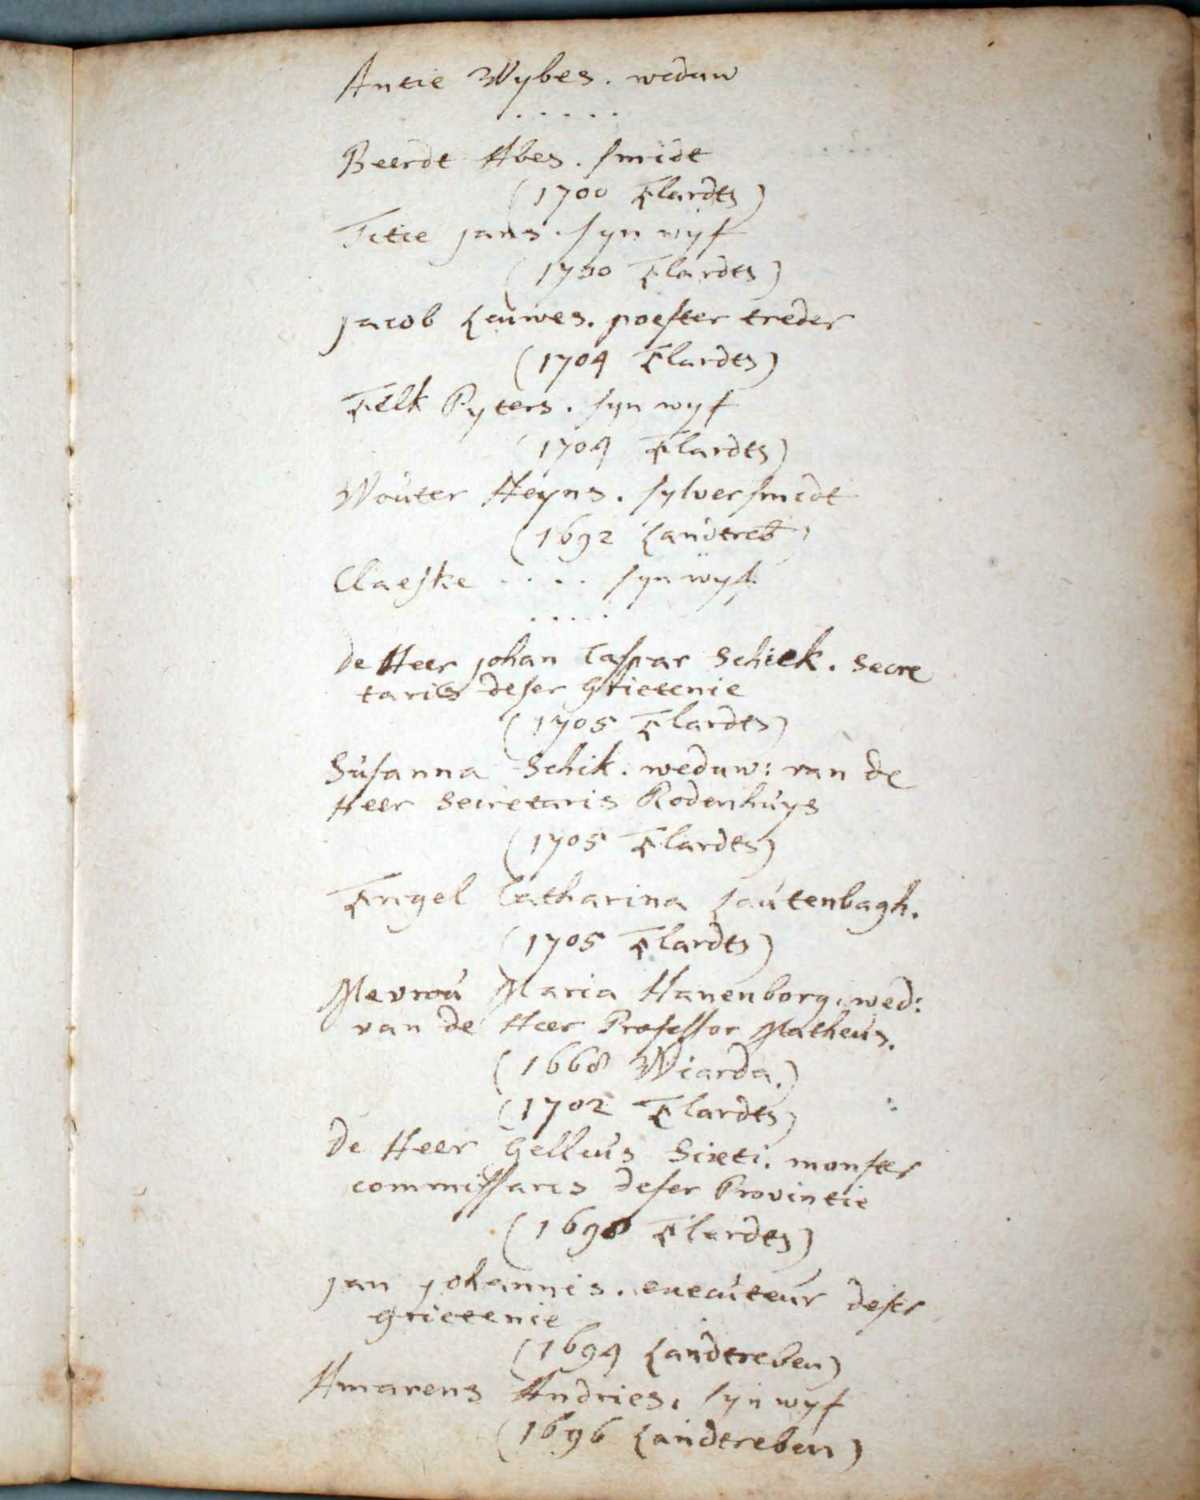 Antie Wybes. weduw
. . . . .
Beerdt Abes. smidt
(1700 Elardts)
Titie jans. syn wyf
(1700 Elardts)
jacob Lauwes. poester treder
(1704 Elardts)
Eelk Pyters. syn wyf
(1704 Elardts)
Wouter Heyns. sylversmidt
(1692 Landreb)
Claeske . . . . syn wyf.
. . . . .
de Heer johan Caspar Schick. Secre
taris deser Grietenie
(1705 Elardts)
Susanna Schik. weduw: van de
Heer Secretaris Rodenhuys
(1705 Elardts)
Engel Catharina Lautenbagh.
(1705 Elardts)
Mevrou Maria Hanenborg. wed:
van de Heer Professor Matheus.
(1668 Wiarda.)
(1702 Elardts)
de Heer Gellius Sixti. monster
commissaris deser Provintie
(1698 Elardts)
jan johannis. executeur deser
grietenie
(1694 Landreben)
Amarens Andries. syn wyf
(1696 Landreben)